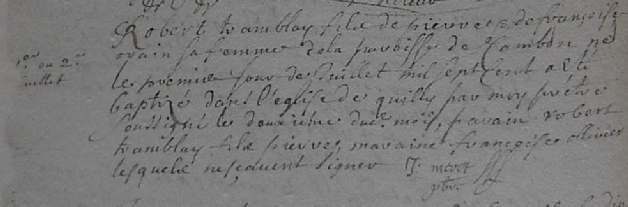 Robert tramblay fils de pierre et de françoise
orain sa femme de la paroisse de Cambon né
1er ou 2me
Juillet
le premier jour de Juillet mil sept cent a été
baptizé dans l'eglise de quilly par moy prêtre
soussigné le douxième du mois, parain robert
tramblay fils pierre, maraine françoise ollivier
lesquels ne sçavent signer J.
ptre